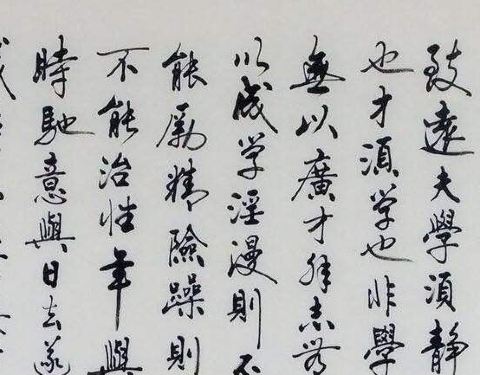 致遠夫學須静
也才須学也非學
無以廣才非志無
以成学淫漫則不
能勵精險躁則
不能治性年與
時馳意與日去遂